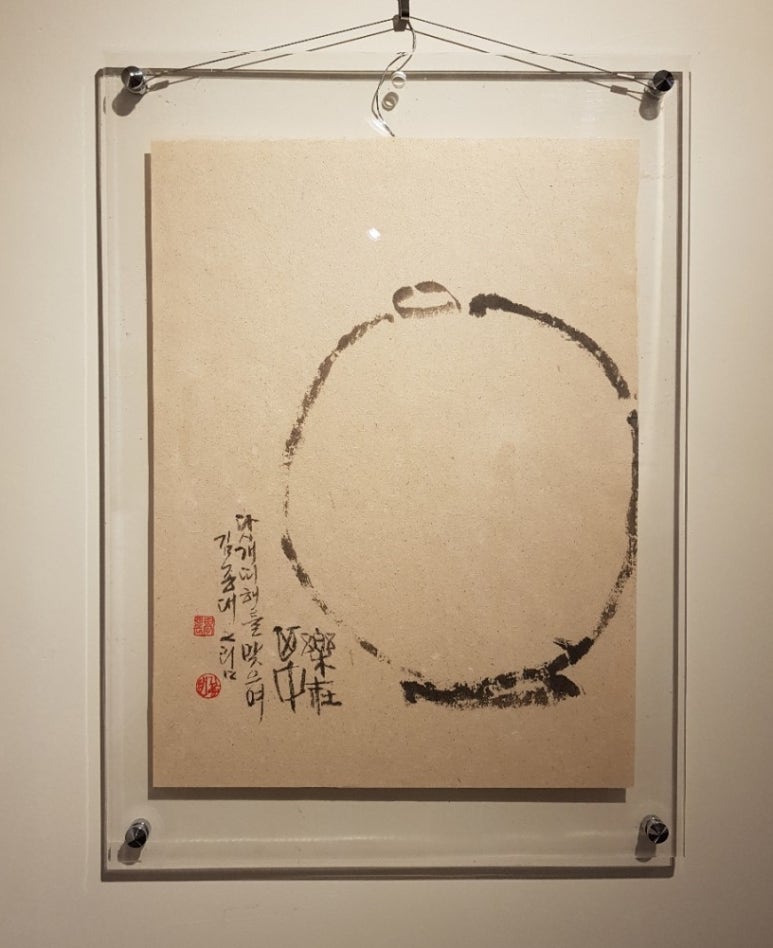 樂在
其中
개띠해를 맞으며
김종대 그림